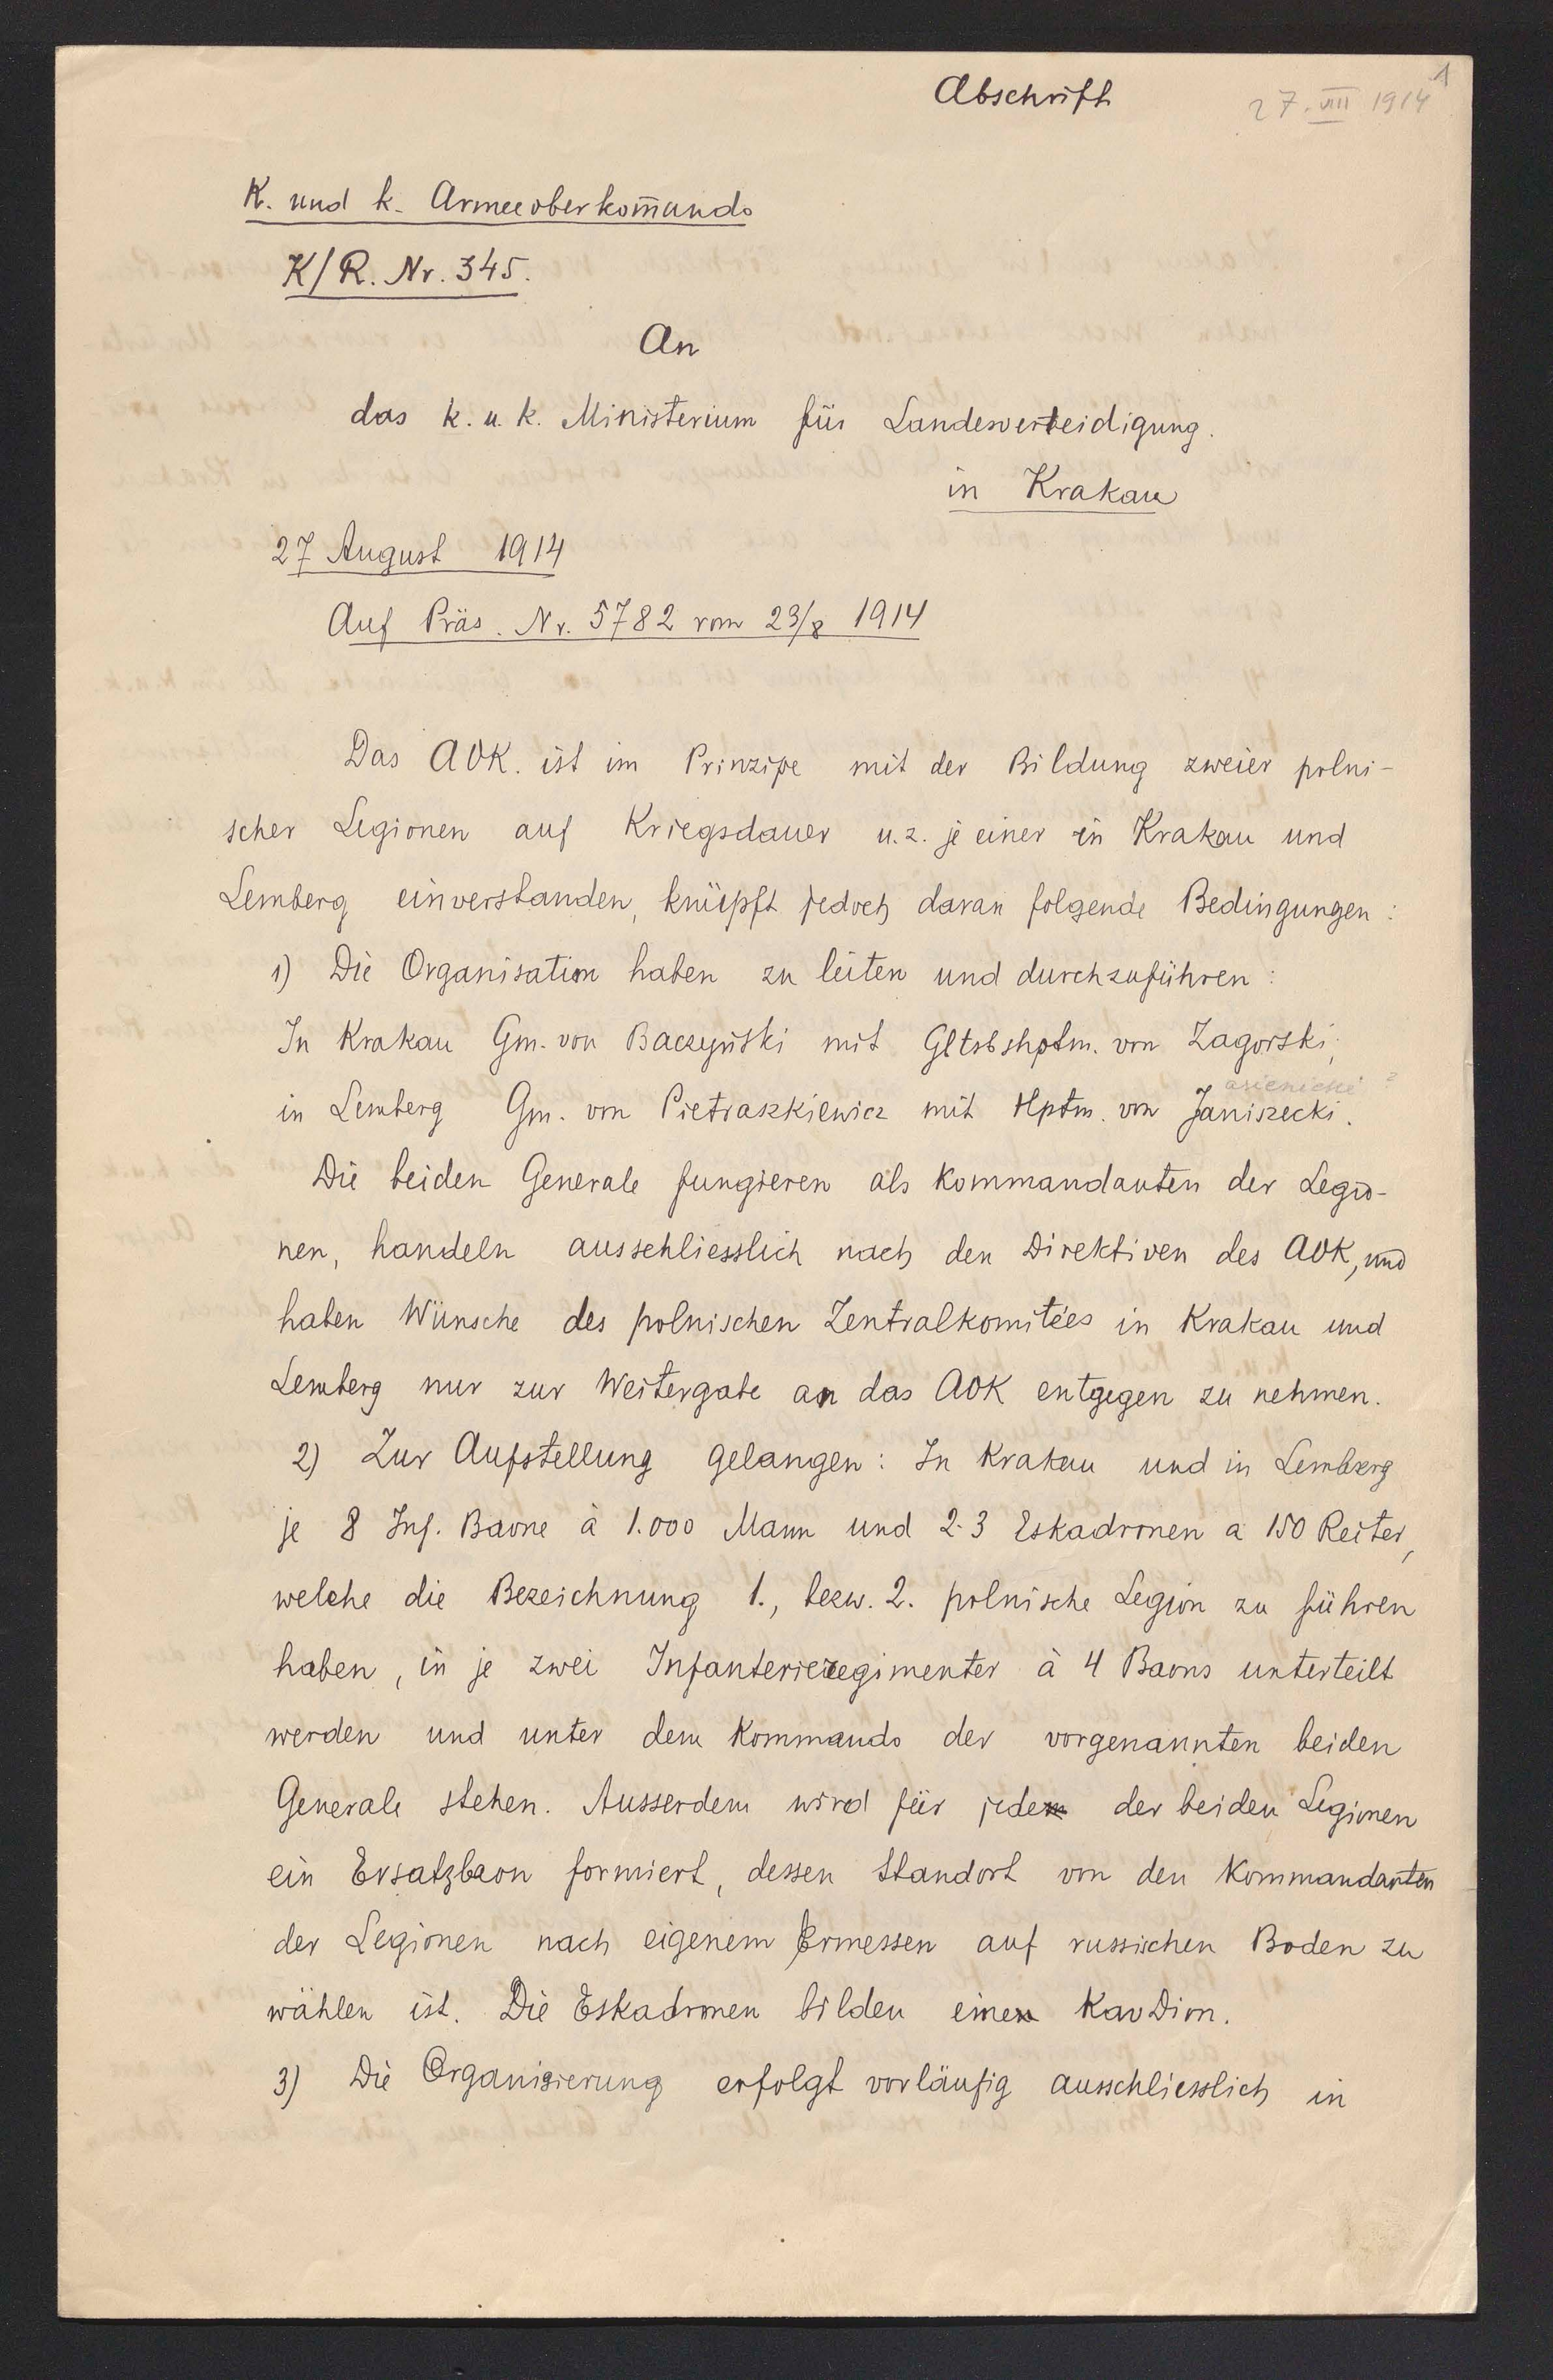 Abschrift
27. VIII 1914
1
K. und k. Armeeoberkom̄ando
K/R. Nr. 345.
An
das k. u. k. Ministerium für Landesverteidigung.
in Krakau
27 August 1914
Auf Präs. Nr. 5782 vom 23/8 1914
Das AOK. ist im Prinzipe mit der Bildung zweier polni-
scher Legionen auf Kriegsdauer u. z. je einer in Krakau und
Lemberg einverstanden, knüpft jedoch daran folgende Bedingungen:
1) Die Organisation haben zu leiten und durchzuführen:
In Krakau Gm. von Baczyński mit Gltsbshptm. von Zagorski,
asienicki ?
in Lemberg Gm. von Pietraszkiewicz mit Hptm. von Janiszecki.
Die beiden Generale fungieren als Kommandanten der Legio-
nen, handeln ausschliesslich nach den Direktiven des AOK, und
haben Wünsche des polnischen Zentralkomitées in Krakau und
Lemberg nur zur Weitergabe an das AOK entgegen zu nehmen.
2) Zur Aufstellung gelangen: In Krakau und in Lemberg
je 8 Inf. Baone à 1.000 Mann und 2-3 Eskadronen a 150 Reiter,
welche die Bezeichnung 1., bezw. 2. polnische Legion zu führen
haben, in je zwei Infanterieregimenter à 4 Baons unterteilt
werden und unter dem Kommando der vorgenannten beiden
Generale stehen. Ausserdem wird für jede der beiden Legionen
ein Ersatzbaon formiert, dessen Standort von den Kommandanten
der Legionen nach eigenem Ermessen auf russischen Boden zu
wählen ist. Die Eskadronen bilden eine KavDion.
3) Die Organisierung erfolgt vorläufig ausschliesslich in